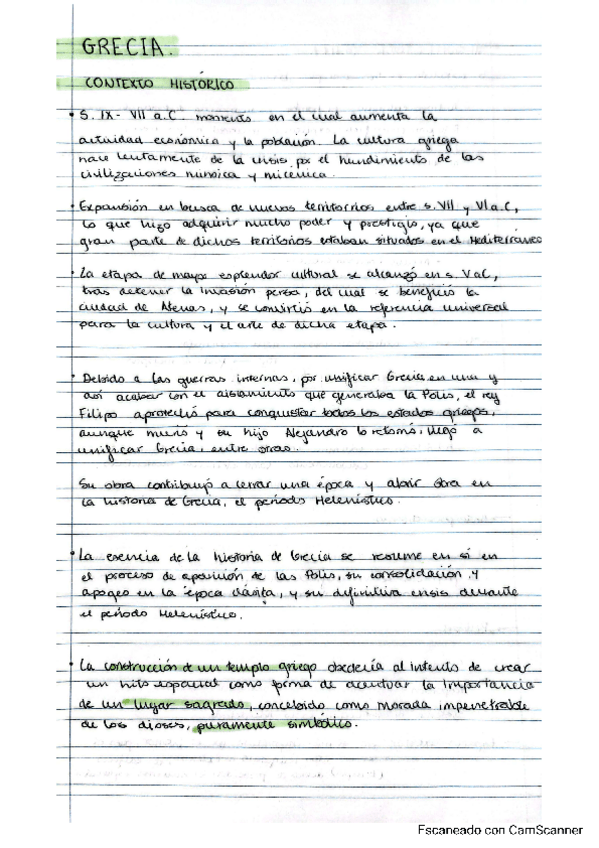 GRECIA.
CONTEXTO HISTÓRICO
• S. IX - VII a.C. momento en el cual aumenta la
actividad económica y la población. La cultura griega
nace lentamente de la crisis por el hundimiento de las
civilizaciones minoica y micénica.
• Expansión en busca de nuevos territorios entre s. VII y VI a.C,
lo que hizo adquirir mucho poder y prestigio, ya que
gran parte de dichos territorios estaban situados en el Mediterráneo
• La etapa de mayor esplendor cultural se alcanzó en s. V a.C,
tras detener la invasión persa, del cual se benefició la
ciudad de Atenas, y se convirtió en la referencia universal
para la cultura y el arte de dicha etapa.
• Debido a las guerras internas, por unificar Grecia en una y
así acabar con el aislamiento que generaba la Polis, el rey
Filipo aprovechó para conquistar todos los estados griegos,
aunque murió y su hijo Alejandro lo retomó, llegó a
unificar Grecia, entre otras.
Su obra contribuyó a cerrar una época y abrir otra en
la historia de Grecia, el período Helenístico.
• La esencia de la historia de Grecia se resume en sí en
el proceso de aparición de las Polis, su consolidación y
apogeo en la época clásica, y su definitiva crisis durante
el período Helenístico.
• La construcción de un templo griego obedería al intento de crear
un hito espacial como forma de acentuar la importancia
de un lugar sagrado, concebido como morada impenetrable
de los dioses, puramente simbólico.
Escaneado con CamScanner